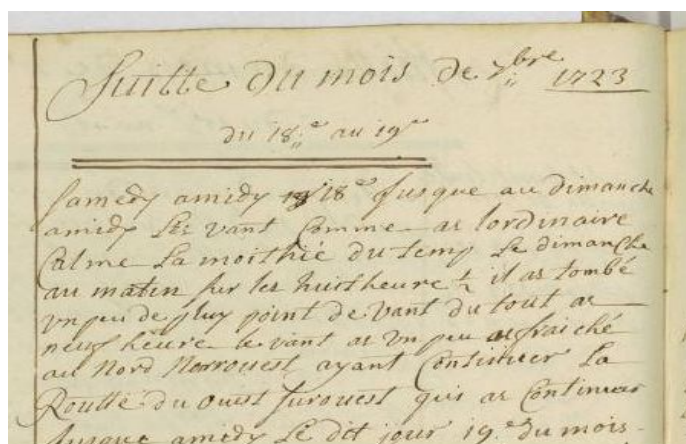 Suitte Du mois De 7bre 1723
du 18.e au 19e
Samedy amidy 18e Jusque au dimanche
amidy Les vant Comme as lordinaire
Calme La moithié du temp Le dimanche
au matin sur les huistheure ½ il as tombé
vn peu de pluy point de vant du tout as
neuf heure le vant as vn peu afraiché
au Nord Norrouest ayant Continuer La
Routte du ouest surouest quis as Continuer
Jusque amidy Le dit jour 19.e du mois